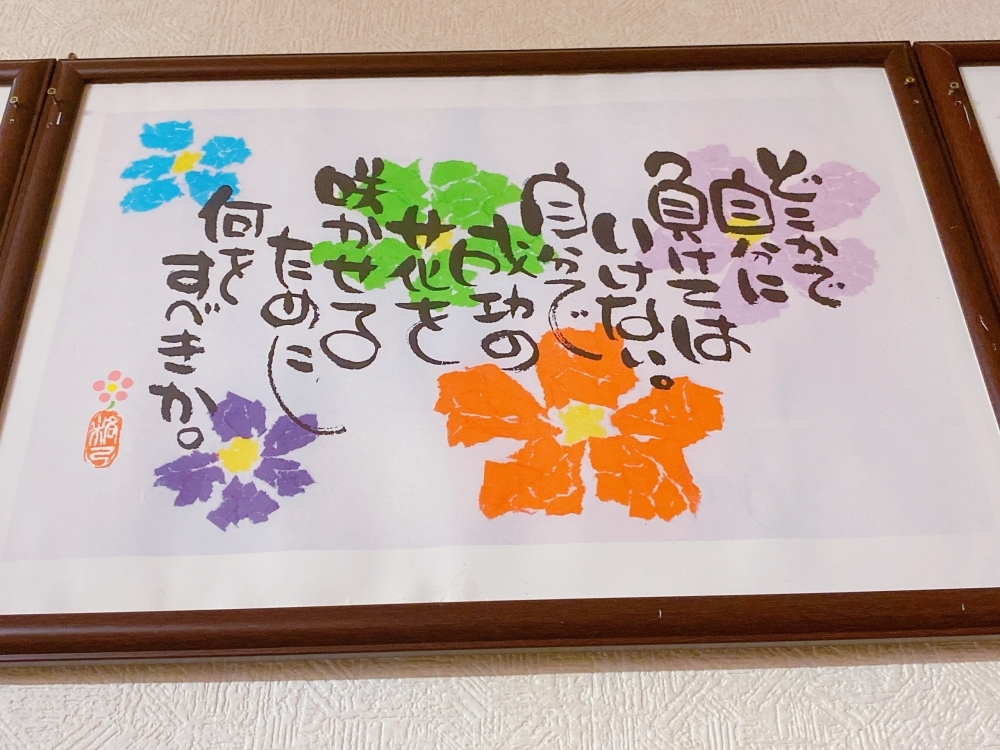 どこかで
自分に
負けては
いけない。
自分で
成功の
花を
咲かせる
ために
何を
すべきか。